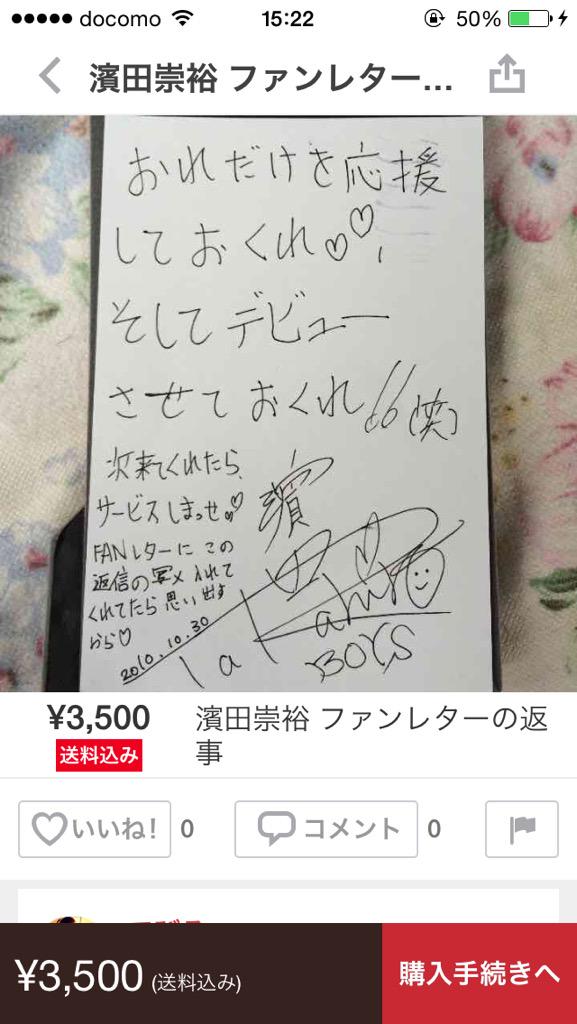 docomo 15:22 50%
濱田崇裕 ファンレター...
おれだけを応援
しておくれ♡♡!
そしてデビュー
させておくれ!!(笑)
次来てくれたら、
サービスしまっせ♡♡
FANレターにこの
返信の写メ入れて
くれてたら思い出す
から♡
2010.10.30
濱田
BOYS
¥3,500 濱田崇裕 ファンレターの返
送料込み 事
いいね! 0 コメント 0
¥3,500 (送料込み) 購入手続きへ